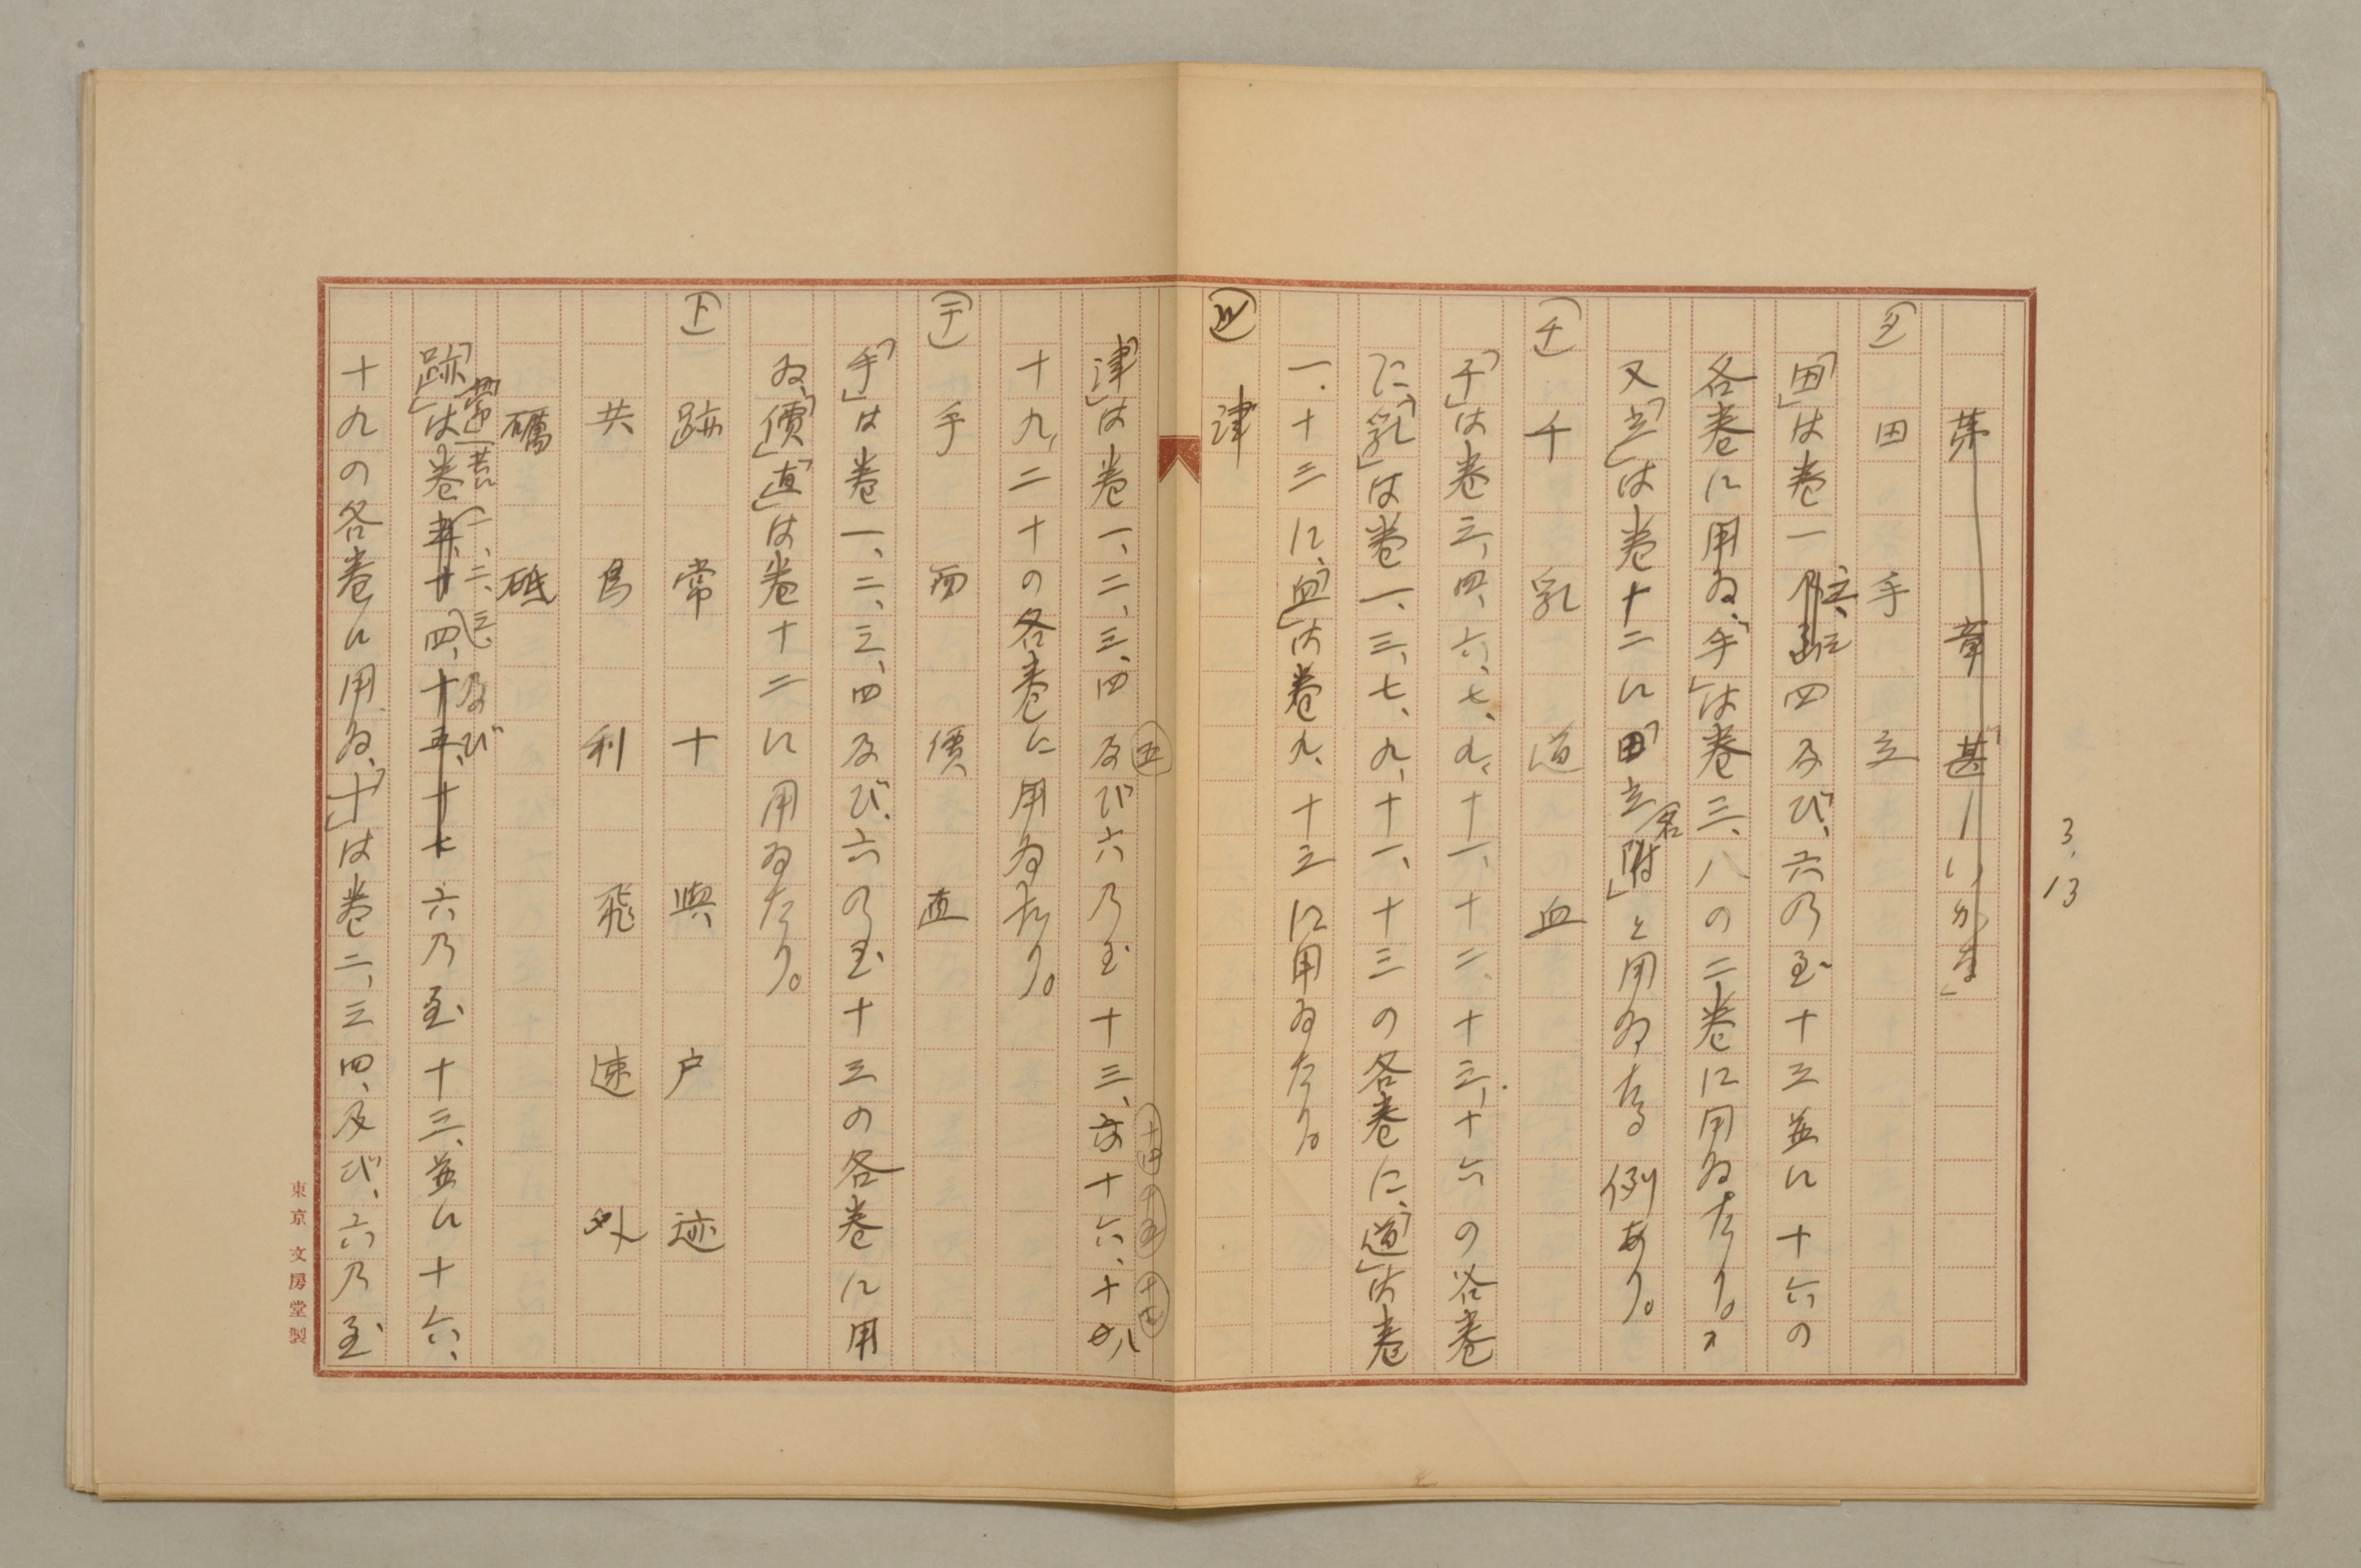 3.13
第　章　「甚しいかま」
(タ)　田　手　立
「田」は卷一、三、四及び、六乃至十三並に十六の
各卷に用ゐ、「手」は卷三、八の二卷に用ゐたり。
又「立」は卷十二に「田立名附」と用ゐたる例あり。
(チ)　千　乳　道　血
「千」は卷三、四、六、七、九、十一、十二、十三、十六の各卷
に、「乳」は卷一、三、七、九、十一、十三の各卷に、「道」は卷
一、十三に、「血」は卷九、十三に用ゐたり。
(ツ)　津
「津」は卷一、二、三、四五及び六乃至十三、十四十五十六、十八
十九、二十の各卷に用ゐたり。
(テ)　手　而　價　直
「手」は卷一、二、三、四及び、六乃至十三の各卷に用
ゐ、「價」「直」は卷十二に用ゐたり。
(ト)　跡　常　十　與　戸　迹
共　鳥　利　飛　速　外
礪　砥
「跡」「常」は卷一、二、三、四、及び六乃至十三、並に十六、
十九の各卷に用ゐ、「十」は卷二、三、四、及び、六乃至
東京　文房堂製